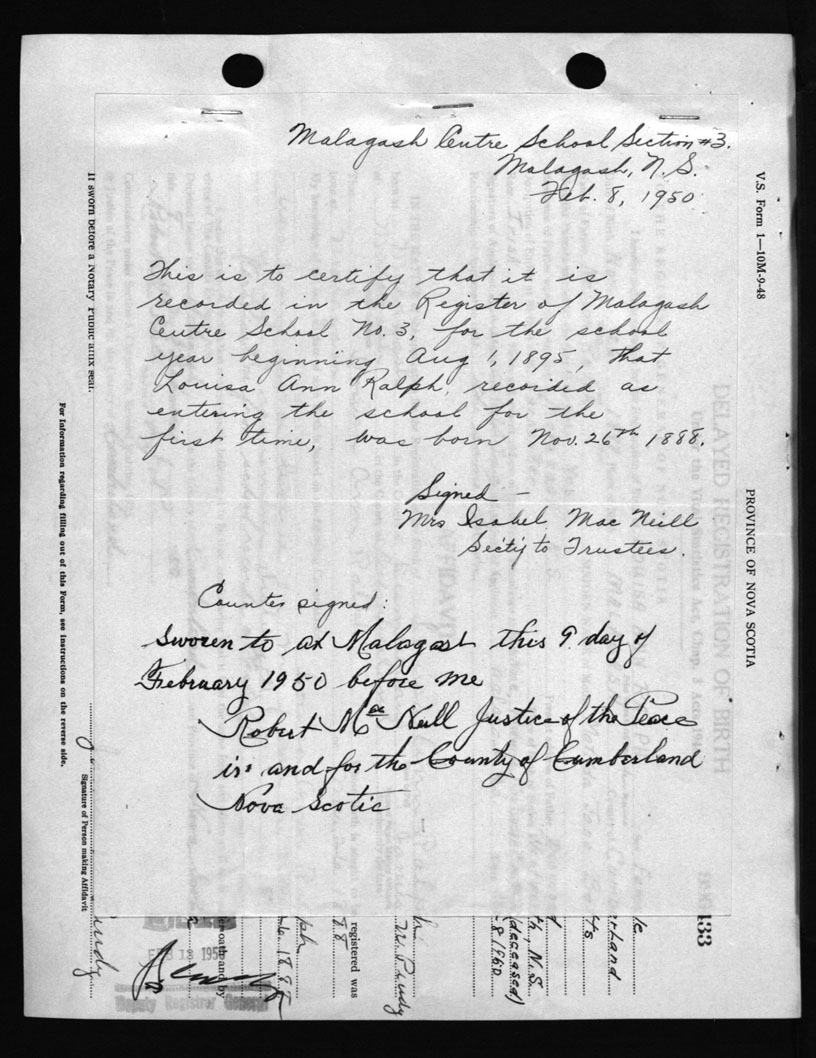 Malagash Centre School, Section #3.
Malagash, N.S.
Feb. 8, 1950
This is to certify that it is
recorded in the Register of Malagash
Centre School No. 3, for the school
year beginning Aug 1, 1895, that
Louisa Ann Ralph, recorded as
entering the school for the
first time, was born Nov. 26th 1888.
Signed –
Mrs Isabel MacNeill
Sec'ty to Trustees.
Counter signed:
Sworen to at Malagash this 9 day of
February 1950 before me
Robert MacNeill Justice of the Peace
in and for the County of Cumberland
Nova Scotia
V.S. Form 1—10M-9-48
PROVINCE OF NOVA SCOTIA
DELAYED REGISTRATION OF BIRTH
133
le
erland
tts
h, N.S.
(deceased)
8 1960
W. Purdy
registered was
88
ph
1888
oath and by
FEB 13 195
Deputy Registrar General
If sworn before a Notary Public affix seal.
Signature of Person making Affidavit
urdy
For information regarding filling out of this Form, see instructions on the reverse side.